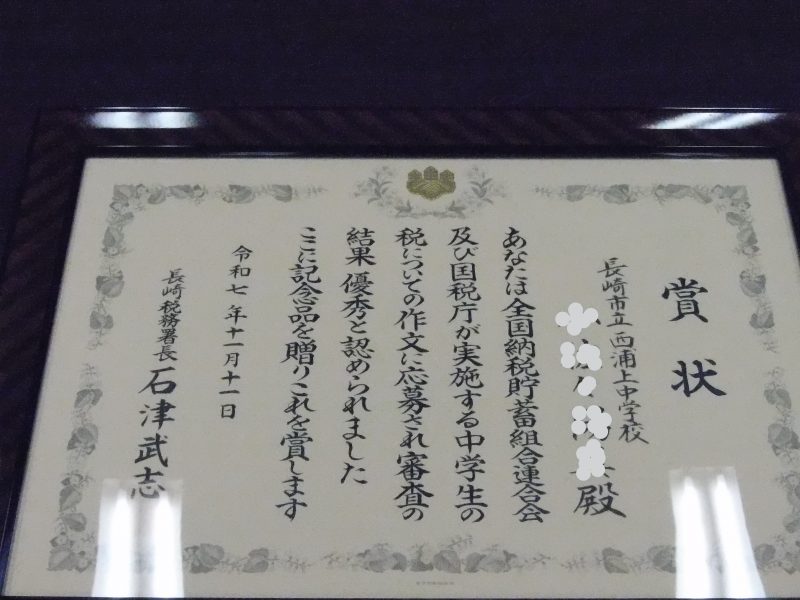 賞状
長崎市立西浦上中学校
殿
あなたは全国納税貯蓄組合連合会
及び国税庁が実施する中学生の
税についての作文に応募され審査の
結果優秀と認められました
ここに記念品を贈りこれを賞します
令和七年十一月十一日
長崎税務署長 石津武志